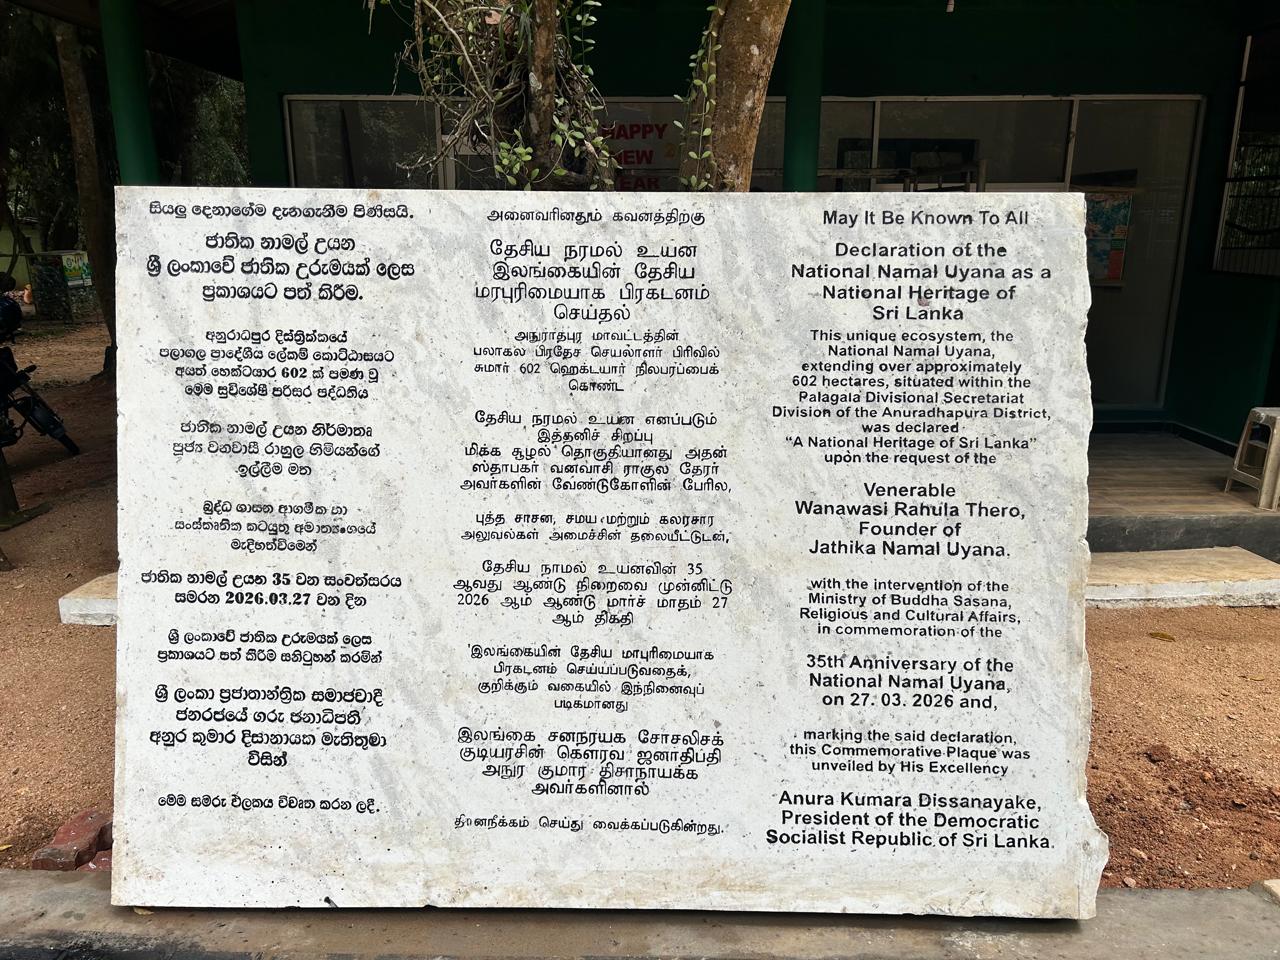 සියලු දෙනාගේම දැනගැනීම පිණිසයි.
ජාතික නාමල් උයන
ශ්‍රී ලංකාවේ ජාතික උරුමයක් ලෙස
ප්‍රකාශයට පත් කිරීම.
අනුරාධපුර දිස්ත්‍රික්කයේ
පලාගල ප්‍රාදේශීය ලේකම් කොට්ඨාසයට
අයත් හෙක්ටයාර 602 ක් පමණ වූ
මෙම සුවිශේෂී පරිසර පද්ධතිය
ජාතික නාමල් උයන නිර්මාතෘ
පූජ්‍ය වනවාසී රාහුල හිමියන්ගේ
ඉල්ලීම මත
බුද්ධ ශාසන ආගමික හා
සංස්කෘතික කටයුතු අමාත්‍යංශයේ
මැදිහත්වීමෙන්
ජාතික නාමල් උයන 35 වන සංවත්සරය
සමරන 2026.03.27 වන දින
ශ්‍රී ලංකාවේ ජාතික උරුමයක් ලෙස
ප්‍රකාශයට පත් කිරීම සනිටුහන් කරමින්
ශ්‍රී ලංකා ප්‍රජාතාන්ත්‍රික සමාජවාදී
ජනරජයේ ගරු ජනාධිපති
අනුර කුමාර දිසානායක මැතිතුමා
විසින්
මෙම සමරු ඵලකය විවෘත කරන ලදී.
அனைவரினதும் கவனத்திற்கு
தேசிய நரமல் உயன
இலங்கையின் தேசிய
மரபுரிமையாக பிரகடனம்
செய்தல்
அநுராதபுர மாவட்டத்தின்
பலாகல பிரதேச செயலாளர் பிரிவில்
சுமார் 602 ஹெக்டயார் நிலபரப்பைக்
கொண்ட
தேசிய நரமல் உயன எனப்படும்
இத்தனிச் சிறப்பு
மிக்க சூழல் தொகுதியானது அதன்
ஸ்தாபகர் வனவாசி ராகுல தேரர்
அவர்களின் வேண்டுகோளின் பேரில,
புத்த சாசன, சமய மற்றும் கலாசார
அலுவல்கள் அமைச்சின் தலையீட்டுடன்,
தேசிய நாமல் உயனவின் 35
ஆவது ஆண்டு நிறைவை முன்னிட்டு
2026 ஆம் ஆண்டு மார்ச் மாதம் 27
ஆம் திகதி
'இலங்கையின் தேசிய மாபுரிமையாக
பிரகடனம் செய்யப்படுவதைக்,
குறிக்கும் வகையில் இந்நினைவுப்
படிகமானது
இலங்கை சனநரயக சோசலிசக்
குடியரசின் கௌரவ ஜனாதிபதி
அநுர குமார திசாநாயக்க
அவர்களினால்
திரைநீக்கம் செய்து வைக்கப்படுகின்றது.
May It Be Known To All
Declaration of the
National Namal Uyana as a
National Heritage of
Sri Lanka
This unique ecosystem, the
National Namal Uyana,
extending over approximately
602 hectares, situated within the
Palagala Divisional Secretariat
Division of the Anuradhapura District,
was declared
“A National Heritage of Sri Lanka”
upon the request of the
Venerable
Wanawasi Rahula Thero,
Founder of
Jathika Namal Uyana.
with the intervention of the
Ministry of Buddha Sasana,
Religious and Cultural Affairs,
in commemoration of the
35th Anniversary of the
National Namal Uyana,
on 27. 03. 2026 and,
marking the said declaration,
this Commemorative Plaque was
unveiled by His Excellency
Anura Kumara Dissanayake,
President of the Democratic
Socialist Republic of Sri Lanka.
HAPPY
NEW
YEAR